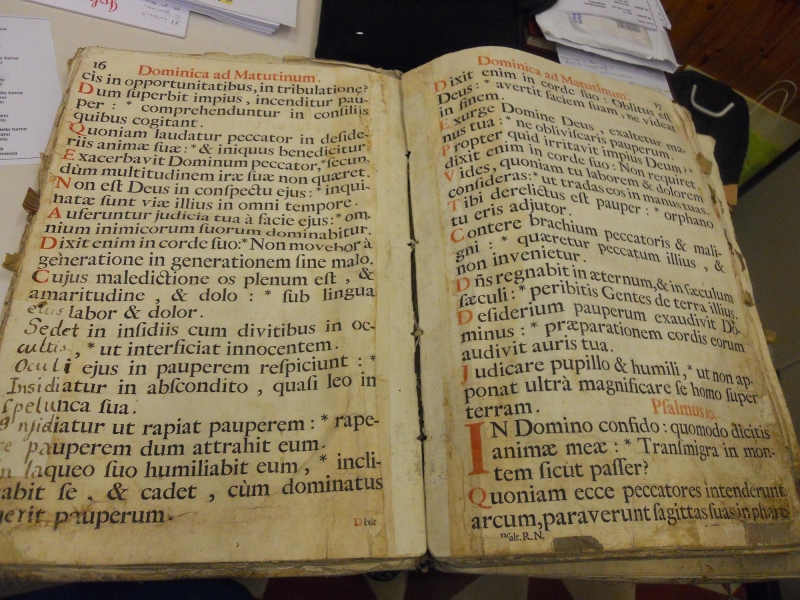 16
Dominica ad Matutinum.
cis in opportunitatibus, in tribulatione?
Dum ſuperbit impius, incenditur pau-
per : * comprehenduntur in conſiliis
quibus cogitant.
Quoniam laudatur peccator in deſide-
riis animæ ſuæ: * & iniquus benedicitur.
Exacerbavit Dominum peccator, * ſecun-
dùm multitudinem iræ ſuæ non quæret.
Non eſt Deus in conſpectu ejus: * inqui-
natæ ſunt viæ illius in omni tempore.
Auferuntur judicia tua à facie ejus: * om-
nium inimicorum ſuorum dominabitur.
Dixit enim in corde ſuo: * Non movebor à
generatione in generationem ſine malo.
Cujus maledictione os plenum eſt , &
amaritudine , & dolo : * ſub lingua
ejus labor & dolor.
Sedet in inſidiis cum divitibus in oc-
cultis, * ut interficiat innocentem.
Oculi ejus in pauperem reſpiciunt : *
Inſidiatur in abſcondito , quaſi leo in
ſpelunca ſua.
Inſidiatur ut rapiat pauperem : * rape-
re pauperem dum attrahit eum.
In laqueo ſuo humiliabit eum , * incli-
abit ſe , & cadet , cùm dominatus
uerit pauperum.
Dixit
Dominica ad Matutinum.
17
Dixit enim in corde ſuo : Oblitus eſt
Deus: * avertit faciem ſuam , ne videat
in finem.
Exurge Domine Deus , exaltetur ma-
nus tua : * ne obliviſcaris pauperum.
Propter quid irritavit impius Deum? *
dixit enim in corde ſuo: Non requiret.
Vides, quoniam tu laborem & dolorem
conſideras: * ut tradas eos in manus tuas.
Tibi derelictus eſt pauper : * orphano
tu eris adjutor.
Contere brachium peccatoris & mali-
gni : * quæretur peccatum illius , &
non invenietur.
Dñs regnabit in æternum, & in ſæculum
ſæculi : * peribitis Gentes de terra illius.
Deſiderium pauperum exaudivit Do-
minus : * præparationem cordis eorum
audivit auris tua.
Judicare pupillo & humili , * ut non ap-
ponat ultrà magnificare ſe homo ſuper
terram.
Pſalmus 10.
IN Domino confido : quomodo dicitis
animæ meæ : * Tranſmigra in mon-
tem ſicut paſſer?
Quoniam ecce peccatores intenderunt
arcum, paraverunt ſagittas ſuas in phare
Pſalt. R. N.